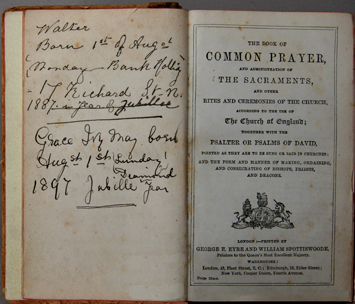 Walter
Born 1st of August
(Monday - Bank Holiday
17 Richard St. N.
1887 in year by Jubilee
Grace Ivy May born
Augst 1st Sunday
Diamond
1897 Jubille year
THE BOOK OF
COMMON PRAYER,
AND ADMINISTRATION OF
THE SACRAMENTS,
AND OTHER
RITES AND CEREMONIES OF THE CHURCH,
ACCORDING TO THE USE OF
The Church of England;
TOGETHER WITH THE
PSALTER OR PSALMS OF DAVID,
POINTED AS THEY ARE TO BE SUNG OR SAID IN CHURCHES;
AND THE FORM AND MANNER OF MAKING, ORDAINING,
AND CONSECRATING OF BISHOPS, PRIESTS,
AND DEACONS.
LONDON:—PRINTED BY
GEORGE E. EYRE AND WILLIAM SPOTTISWOODE,
Printers to the Queen's Most Excellent Majesty.
WAREHOUSES:
London, 43, Fleet Street, E.C.; Edinburgh, 16, Elder Street;
New York, Cooper Union, Fourth Avenue.